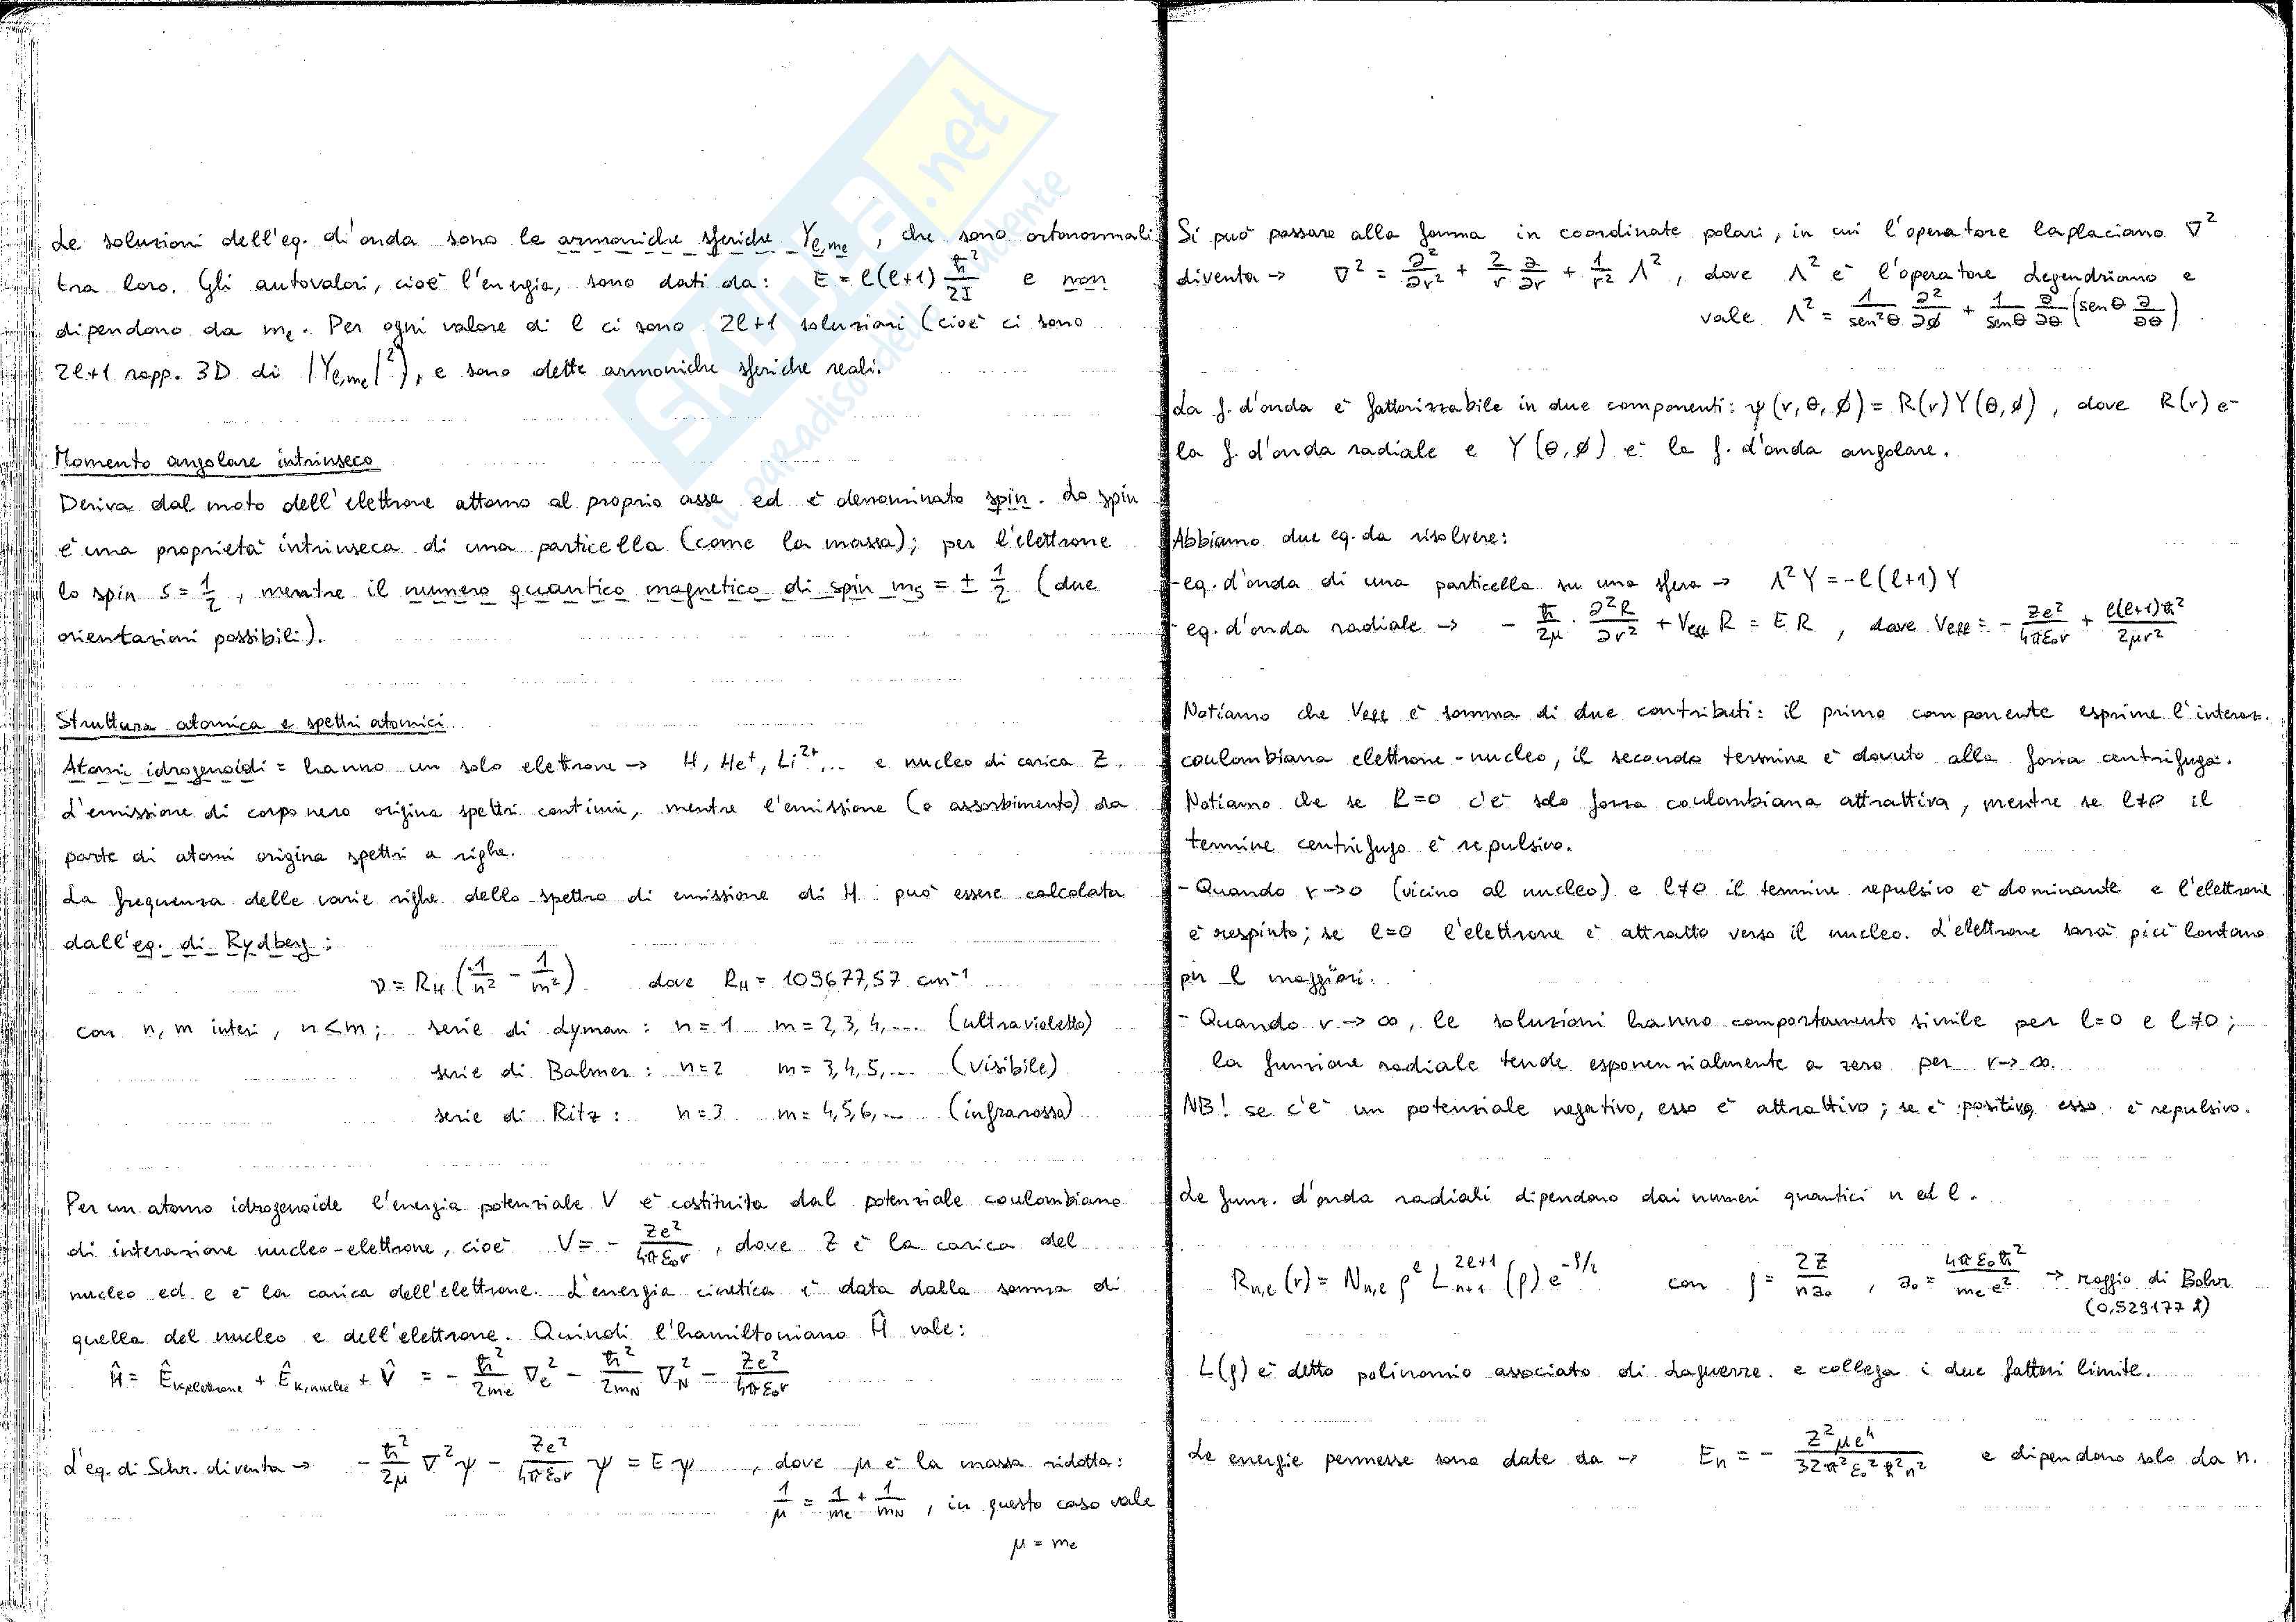 Le soluzioni dell'eq. d'onda sono le armoniche sferiche Y_{l,ml}, che sono ortonormali
tra loro. Gli autovalori, cioè l'energia, sono dati da: E = l(l+1) ħ²/2I e non
dipendono da m_l. Per ogni valore di l ci sono 2l+1 soluzioni (cioè ci sono
2l+1 rapp. 3D di |Y_{l,ml}|²), e sono dette armoniche sferiche reali.
Momento angolare intrinseco
Deriva dal moto dell'elettrone attorno al proprio asse ed è denominato spin. Lo spin
è una proprietà intrinseca di una particella (come la massa); per l'elettrone
lo spin s = 1/2, mentre il numero quantico magnetico di spin m_s = ± 1/2 (due
orientazioni possibili).
Struttura atomica e spettri atomici
Atomi idrogenoidi = hanno un solo elettrone → H, He⁺, Li²⁺,... e nucleo di carica Z.
L'emissione di corpo nero origina spettri continui, mentre l'emissione (o assorbimento) da
parte di atomi origina spettri a righe.
La frequenza delle varie righe dello spettro di emissione di H può essere calcolata
dall'eq. di Rydberg:
ν = R_H (1/n² - 1/m²) dove R_H = 109677,57 cm⁻¹
con n, m interi, n<m; serie di Lyman: n=1 m=2,3,4,... (ultravioletto)
serie di Balmer: n=2 m=3,4,5,... (visibile)
serie di Ritz: n=3 m=4,5,6,... (infrarosso)
Per un atomo idrogenoide l'energia potenziale V è costituita dal potenziale coulombiano
di interazione nucleo-elettrone, cioè V = - Ze²/4πε₀r, dove Z è la carica del
nucleo ed e è la carica dell'elettrone. L'energia cinetica è data dalla somma di
quella del nucleo e dell'elettrone. Quindi l'hamiltoniano Ĥ vale:
Ĥ = Ê_{k,elettrone} + Ê_{k,nucleo} + V̂ = - ħ²/2m_e ∇_e² - ħ²/2m_N ∇_N² - Ze²/4πε₀r
L'eq. di Schr. diventa → - ħ²/2μ ∇²ψ - Ze²/4πε₀r ψ = Eψ, dove μ è la massa ridotta:
1/μ = 1/m_e + 1/m_N, in questo caso vale
μ = m_e
Si può passare alla forma in coordinate polari, in cui l'operatore laplaciano ∇²
diventa → ∇² = ∂²/∂r² + 2/r ∂/∂r + 1/r² Λ², dove Λ² è l'operatore Legendriano e
vale Λ² = 1/sen²θ ∂²/∂φ + 1/senθ ∂/∂θ (senθ ∂/∂θ)
La f. d'onda è fattorizzabile in due componenti: ψ(r,θ,φ) = R(r)Y(θ,φ), dove R(r) è
la f. d'onda radiale e Y(θ,φ) è la f. d'onda angolare.
Abbiamo due eq. da risolvere:
- eq. d'onda di una particella su una sfera → Λ²Y = -l(l+1)Y
- eq. d'onda radiale → - ħ/2μ · ∂²R/∂r² + V_eff R = ER, dove V_eff = - Ze²/4πε₀r + l(l+1)ħ²/2μr²
Notiamo che V_eff è somma di due contributi: il primo componente esprime l'interaz.
coulombiana elettrone-nucleo, il secondo termine è dovuto alla forza centrifuga.
Notiamo che se l=0 c'è solo forza coulombiana attrattiva, mentre se l≠0 il
termine centrifugo è repulsivo.
- Quando r→0 (vicino al nucleo) e l≠0 il termine repulsivo è dominante e l'elettrone
è respinto; se l=0 l'elettrone è attratto verso il nucleo. L'elettrone sarà più lontano
per l maggiori.
- Quando r→∞, le soluzioni hanno comportamento simile per l=0 e l≠0;
la funzione radiale tende esponenzialmente a zero per r→∞.
NB! se c'è un potenziale negativo, esso è attrattivo; se è positivo esso è repulsivo.
Le funz. d'onda radiali dipendono dai numeri quantici n ed l.
R_{n,l}(r) = N_{n,l} ρ^l L_{n+1}^{2l+1}(ρ) e^{-ρ/2} con ρ = 2Z/na₀, a₀ = 4πε₀ħ²/m_e e² → raggio di Bohr
(0,529177 Å)
L(ρ) è detto polinomio associato di Laguerre e collega i due fattori limite.
Le energie permesse sono date da → E_n = - Z²μe⁴/32π²ε₀²ħ²n² e dipendono solo da n.
SKUOLA.net
il paradiso dello studente